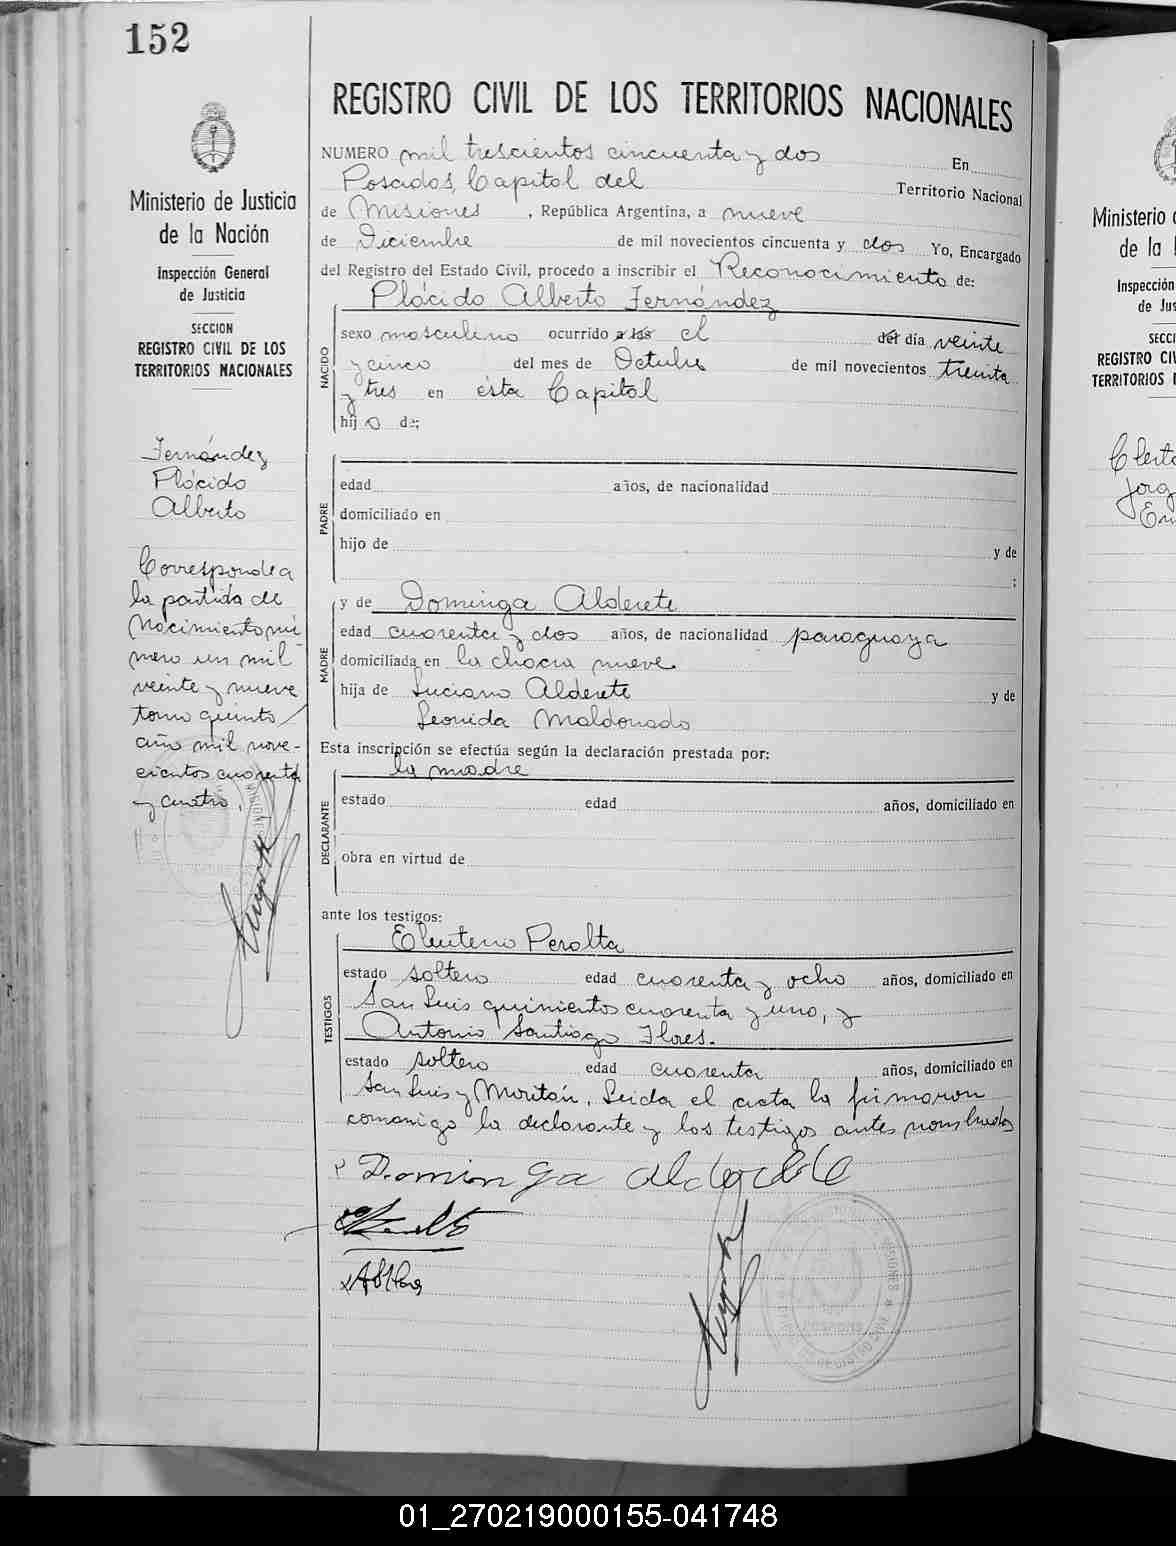 152
REGISTRO CIVIL DE LOS TERRITORIOS NACIONALES
Ministerio de Justicia
de la Nación
Inspección General
de Justicia
SECCION
REGISTRO CIVIL DE LOS
TERRITORIOS NACIONALES
Fernández
Plácido
Alberto
Corresponde a
la partida de
Nacimiento nú-
mero un mil
veinte y nueve
tomo quinto
año mil nove-
cientos cuarenta
y cuatro.
NUMERO mil trescientos cincuenta y dos En
Posadas, Capital del Territorio Nacional
de Misiones, República Argentina, a nueve
de Diciembre de mil novecientos cincuenta y dos Yo, Encargado
del Registro del Estado Civil, procedo a inscribir el Reconocimiento de:
NACIDO
Plácido Alberto Fernández
sexo masculino ocurrido a las el del día veinte
y cinco del mes de Octubre de mil novecientos treinta
y tres en ésta Capital
hijo de:
PADRE
edad años, de nacionalidad
domiciliado en
hijo de y de
:
MADRE
y de Dominga Alderete
edad cuarenta y dos años, de nacionalidad paraguaya
domiciliada en la chacra nueve
hija de Luciano Alderete y de
Leonida Maldonado
Esta inscripción se efectúa según la declaración prestada por:
DECLARANTE
la madre
estado edad años, domiciliado en
obra en virtud de
ante los testigos:
TESTIGOS
Eleuterio Peralta
estado soltero edad cuarenta y ocho años, domiciliado en
San Luis quinientos cuarenta y uno, y
Antonio Santiago Flores.
estado soltero edad cuarenta años, domiciliado en
San Luis y Moritán. Leida el acta la firmaron
comanigo la declarante y los testigos antes nombrados
Dominga alderete
Ministerio
de la
Inspección
de Jus
SECCI
REGISTRO CIV
TERRITORIOS
01_270219000155-041748